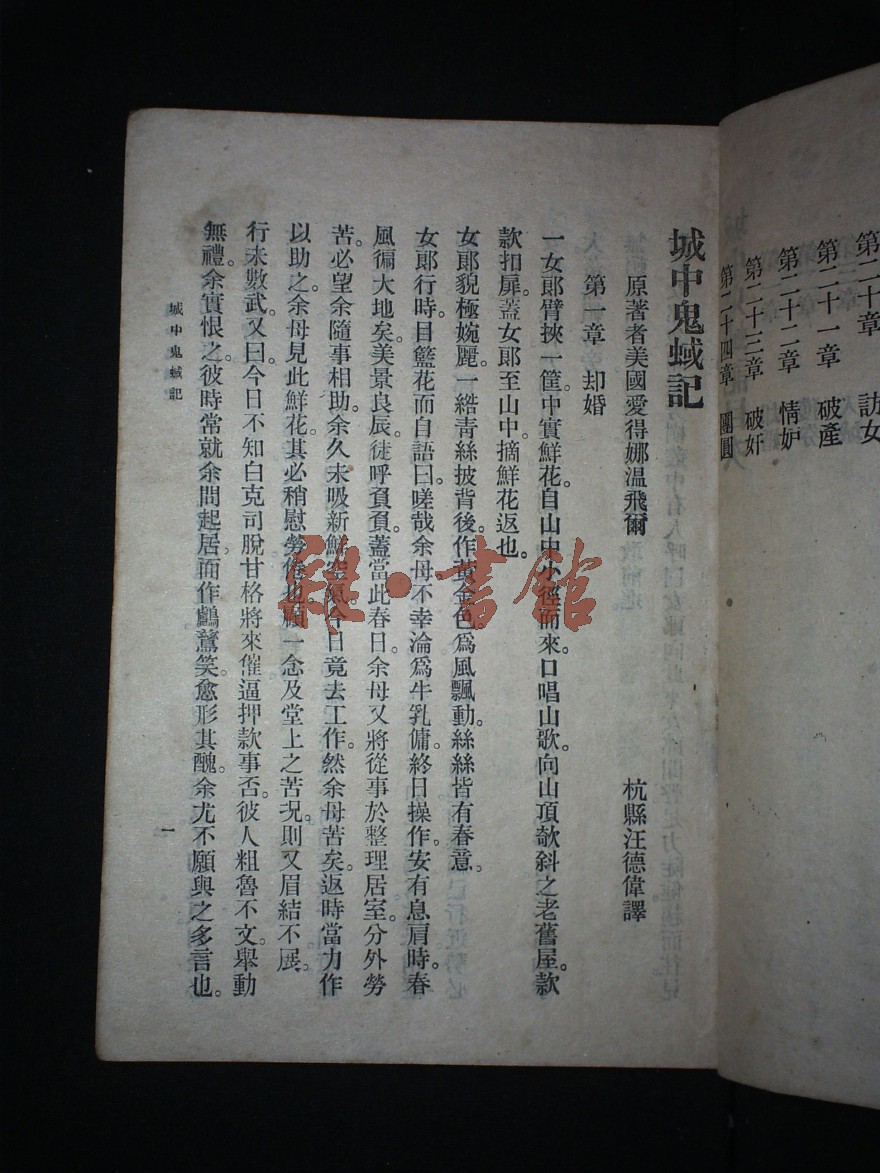 第二十章 訪女
第二十一章 破產
第二十二章 情妒
第二十三章 破奸
第二十四章 團圓
城中鬼蜮記
原著者美國愛得娜温飛爾
杭縣汪德偉譯
第一章 却婚
一女郎臂挾一筐。中實鮮花。自山中小徑而來。口唱山歌。向山頂欹斜之老舊屋。款
款扣扉。蓋女郎至山中。摘鮮花返也。
女郎貌極婉麗。一綹青絲披背後。作黃金色。爲風飄動。絲絲皆有春意。
女郎行時。目籃花而自語曰。嗟哉余母不幸淪爲牛乳傭。終日操作。安有息肩時。春
風徧大地矣。美景良辰。徒呼負負。蓋當此春日。余母又將從事於整理居室。分外勞
苦。必望余隨事相助。余久未吸新鮮空氣。今日竟去工作。然余母苦矣。返時當力作
以助之。余母見此鮮花。其必稍慰勞倦也。顧一念及堂上之苦况。則又眉結不展。
行未數武。又曰。今日不知白克司脫甘格將來催逼押款事否。彼人粗魯不文。舉動
無禮。余實恨之。彼時常就余問起居。而作鸕鶿笑。愈形其醜。余尤不願與之多言也。
城中鬼蜮記
一
雅·書館